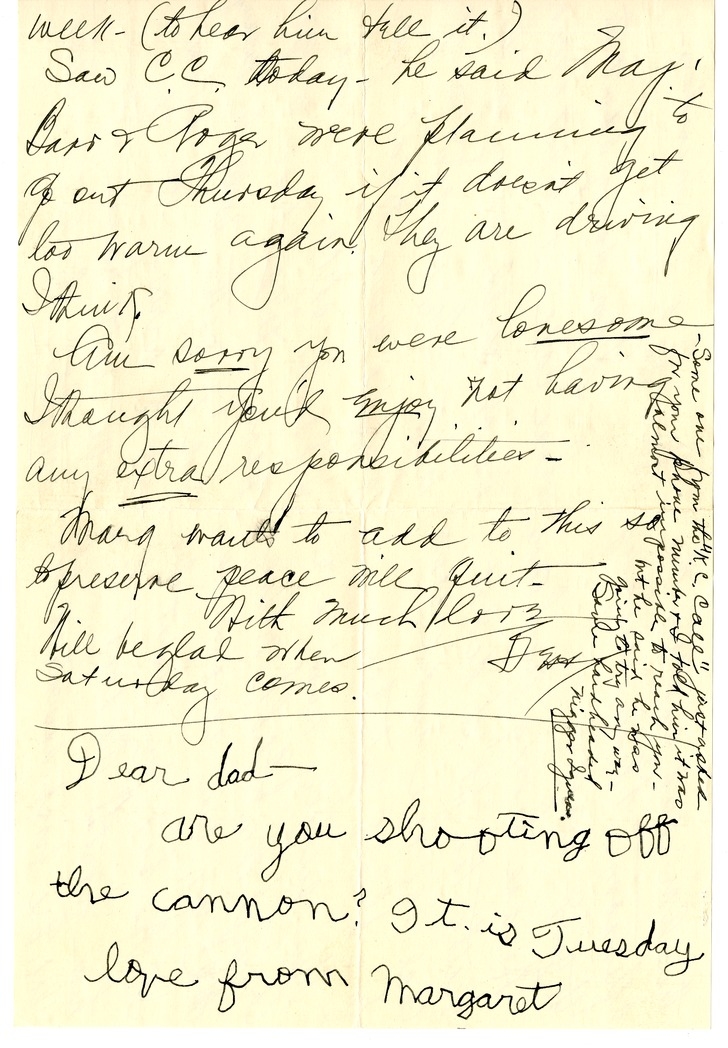 week - (to hear him tell it.)
Saw C.C. today - he said Maj.
Barr & Roger were planning to
go out Thursday if it doesn't get
too warm again. They are driving
I think.
Am sorry you were lonesome -
I thought you'd enjoy not having
any extra responsibilities -
Marg wants to add to this so
to preserve peace will quit -
With much love
Will be glad when
Bess
Saturday comes.
Some one from the "K.C. Call" just asked
for your phone number & I told him it was
almost impossible to reach you -
but he said he was
going to try any way -
hardheaded
nigger I guess.
Dear dad —
are you shooting off
the cannon? It. is Tuesday
love from Margaret